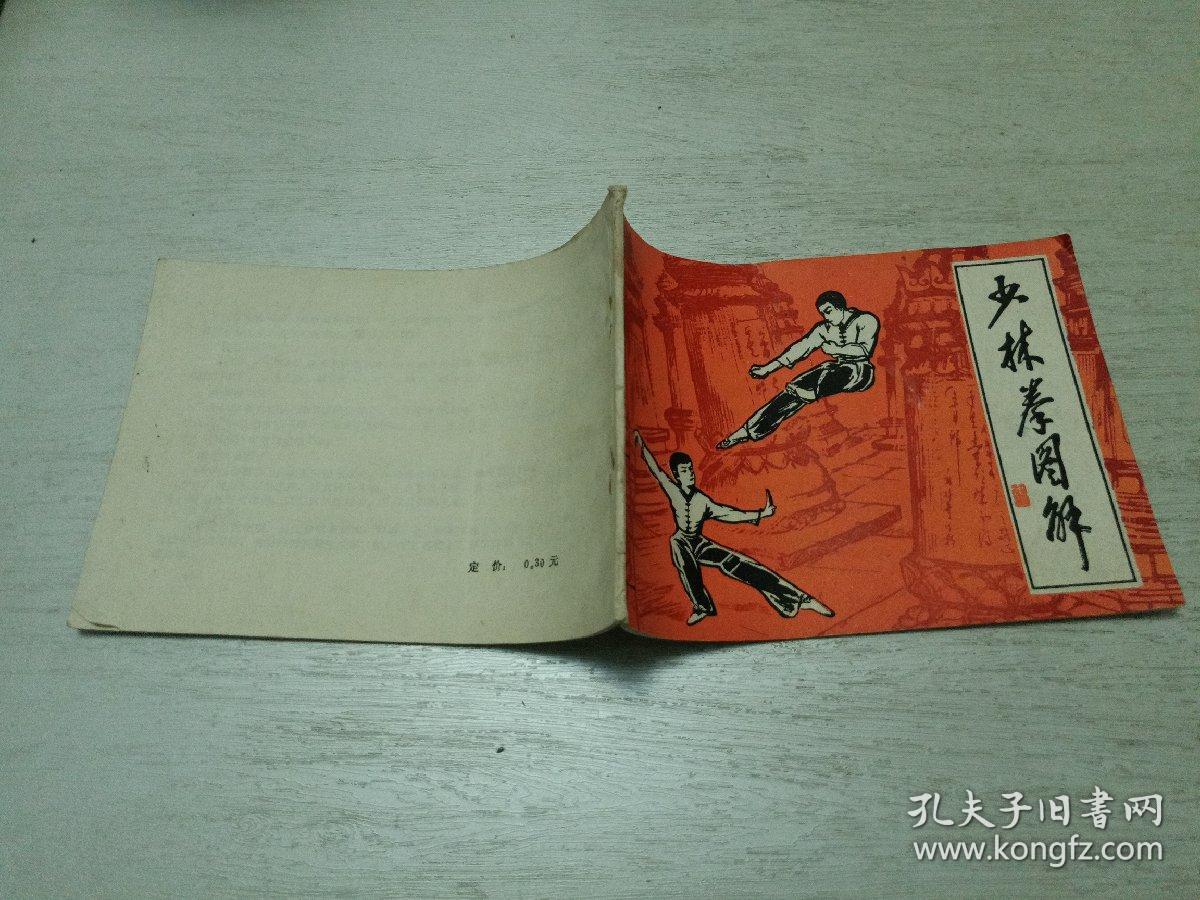 少林拳图解
定价：0.30元
孔夫子旧書网
www.kongfz.com